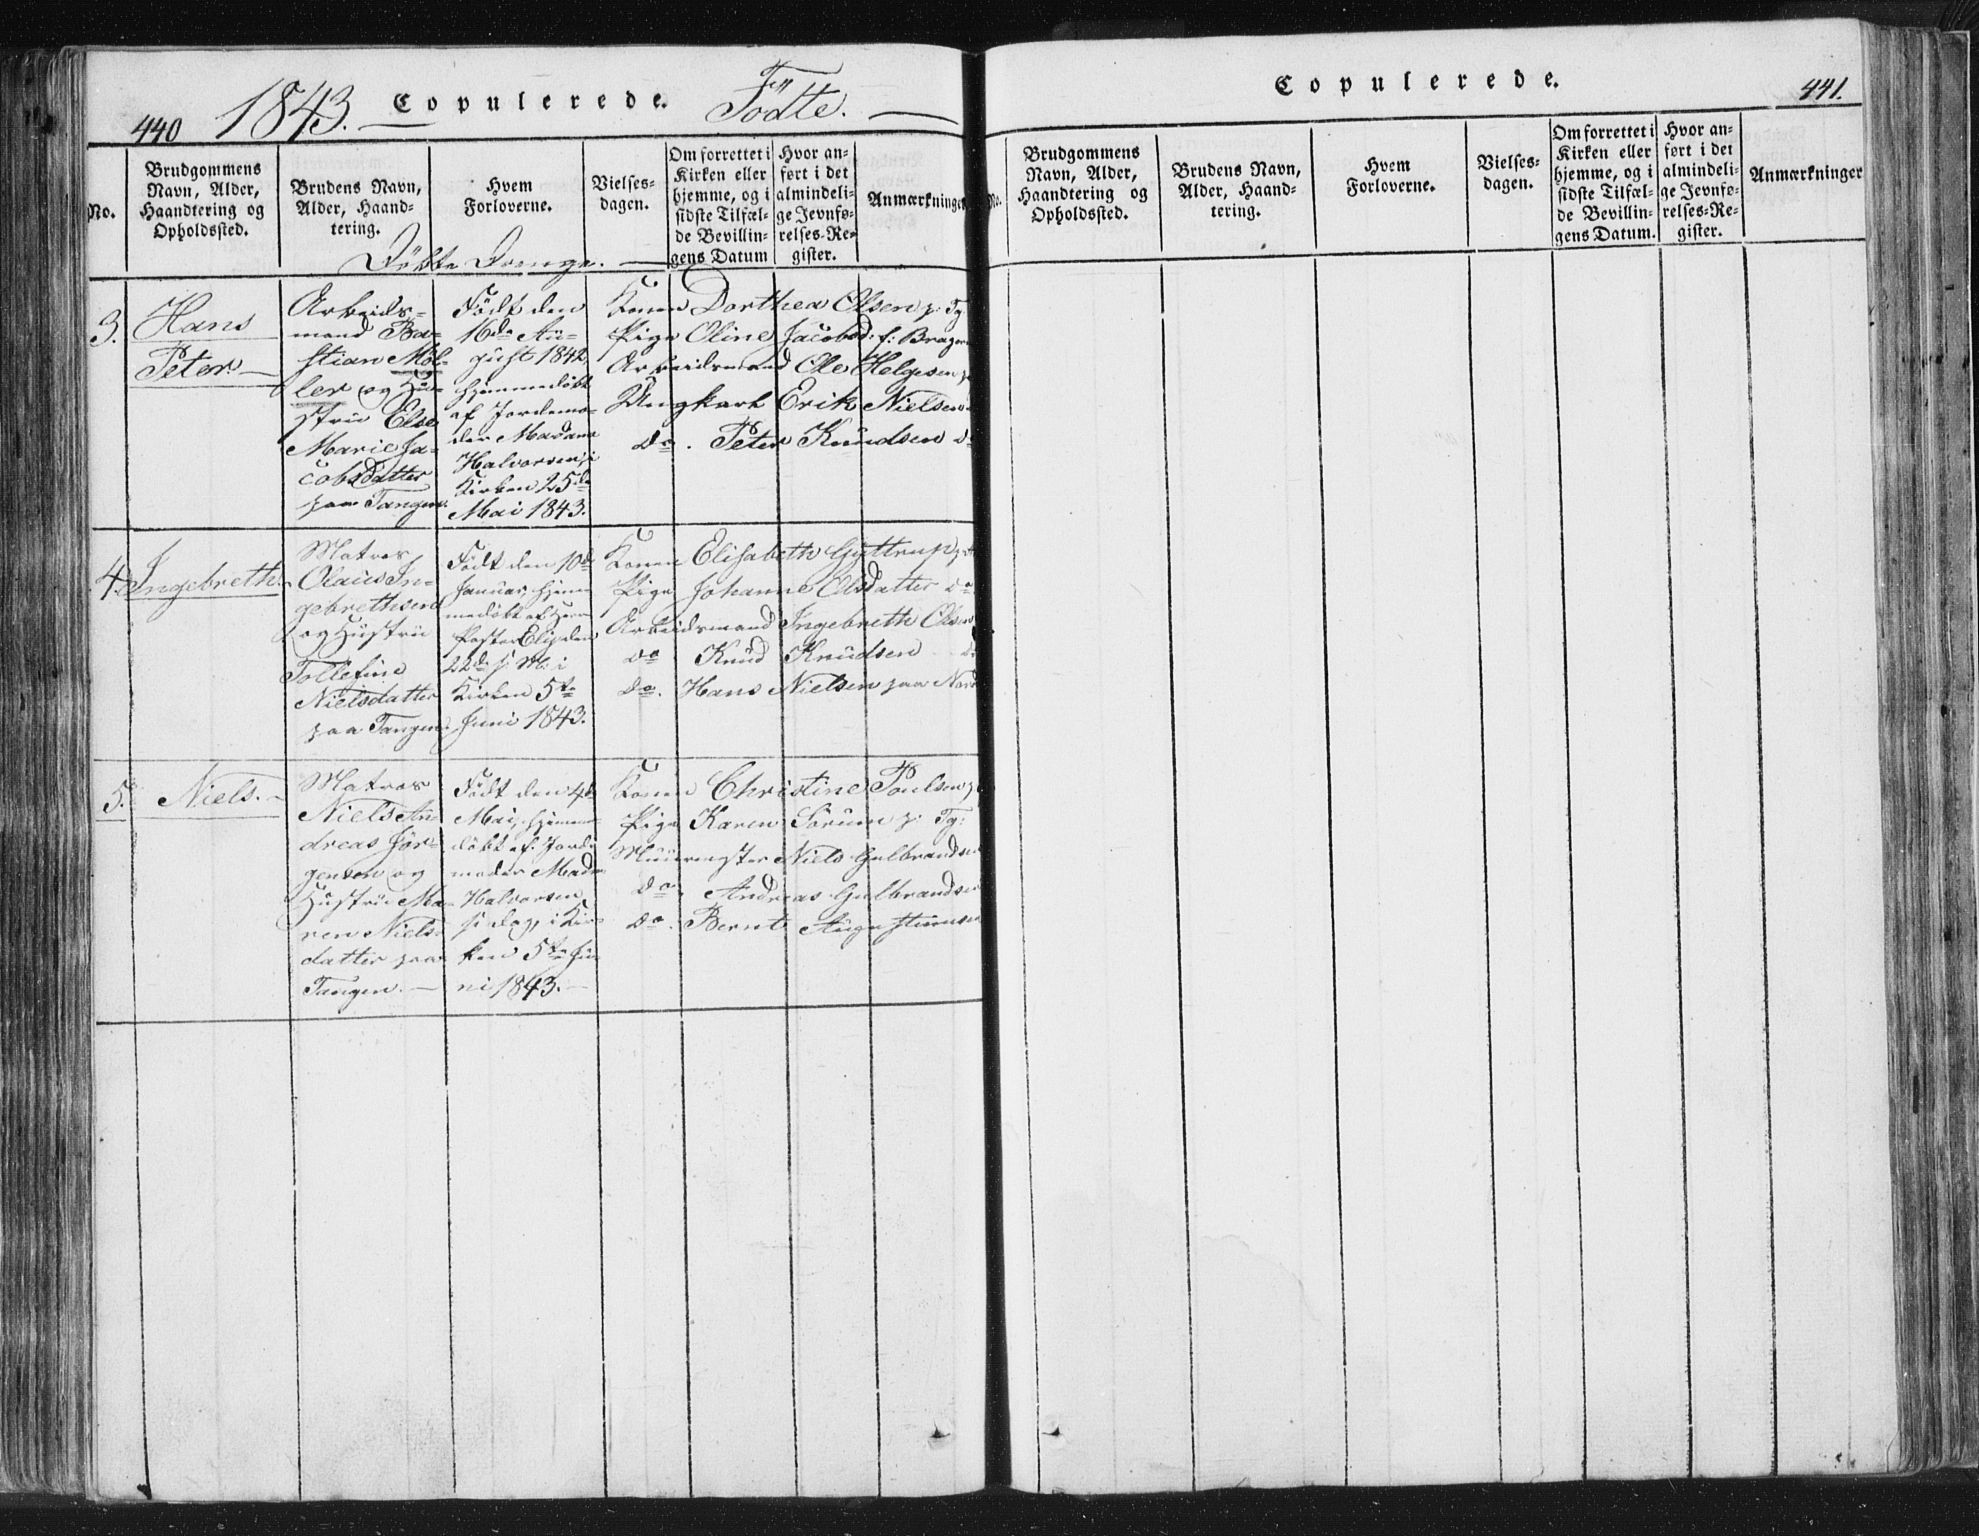 440 1843. Copulerede. Födte.
No.
Brudgommens
Navn, Alder,
Haandtering og
Opholdssted.
Brudens Navn,
Alder, Haand-
tering.
Hvem
Forloverne.
Vielses-
dagen.
Om forrettet i
Kirken eller
hjemme, og i
sidste Tilfæl-
de Bevillin-
gens Datum
Hvor an-
ført i det
almindeli-
ge Jevnfø-
relses-Re-
gister.
Anmærkninger
Döbte Drenge.
3.
Hans
Peter
Arbeids-
mand Ba-
stian Möl-
ler og Hu-
stru Else
Marie Ja-
cobsdatter
paa Tangen.
Født den
16de Au-
gust 1842,
hjemmedöbt
af Jordemo-
der Madame
Halvorsen, i
Kirken 25de
Mai 1843.
Konen Dorthea Olsen p: Tg
Pige Oline Jacobsd: f: Brager
Arbeidsmand Ole Helgesen p
Ungkarl Erik Nielsen
do. Peter Knudsen do
4.
Ingebreth.
Matros
Olaus In-
gebrethsen
og Hustru
Tollefine
Nielsdatter
paa Tangen.
Født den 10de
Januar, hjem-
medöbt af
Pastor den
22de s. M. i
Kirken 5te
Juni 1843.
Konen Elisabeth Gyttrup p:
Pige Johanne Olsdatter do
Arbeidsmand Ingebreth Olsen
do Knud Knudsen do
do. Hans Nielsen paa Nord
5.
Niels.
Matros
Niels An-
dreas Jör-
gensen og
Hustru Ma-
ren Niels-
datter paa
Tangen.
Født den 4de
Mai, hjemme-
döbt af Jorde-
moder Madm
Halvorsen
s: dag, i Kir-
ken 5te Ju-
ni 1843.
Konen Christine Poulsen p
Pige Karen Sorum p: Tg:
Muurmester Niels Gulbrandsen
do. Andreas Gulbrandsen
do. Bernt Augustinusen
Copulerede. 441.
No.
Brudgommens
Navn, Alder,
Haandtering og
Opholdssted.
Brudens Navn,
Alder, Haand-
tering.
Hvem
Forloverne.
Vielses-
dagen.
Om forrettet i
Kirken eller
hjemme, og i
sidste Tilfæl-
de Bevillin-
gens Datum.
Hvor an-
ført i det
almindeli-
ge Jevnfø-
relses-Re-
gister.
Anmærkninger